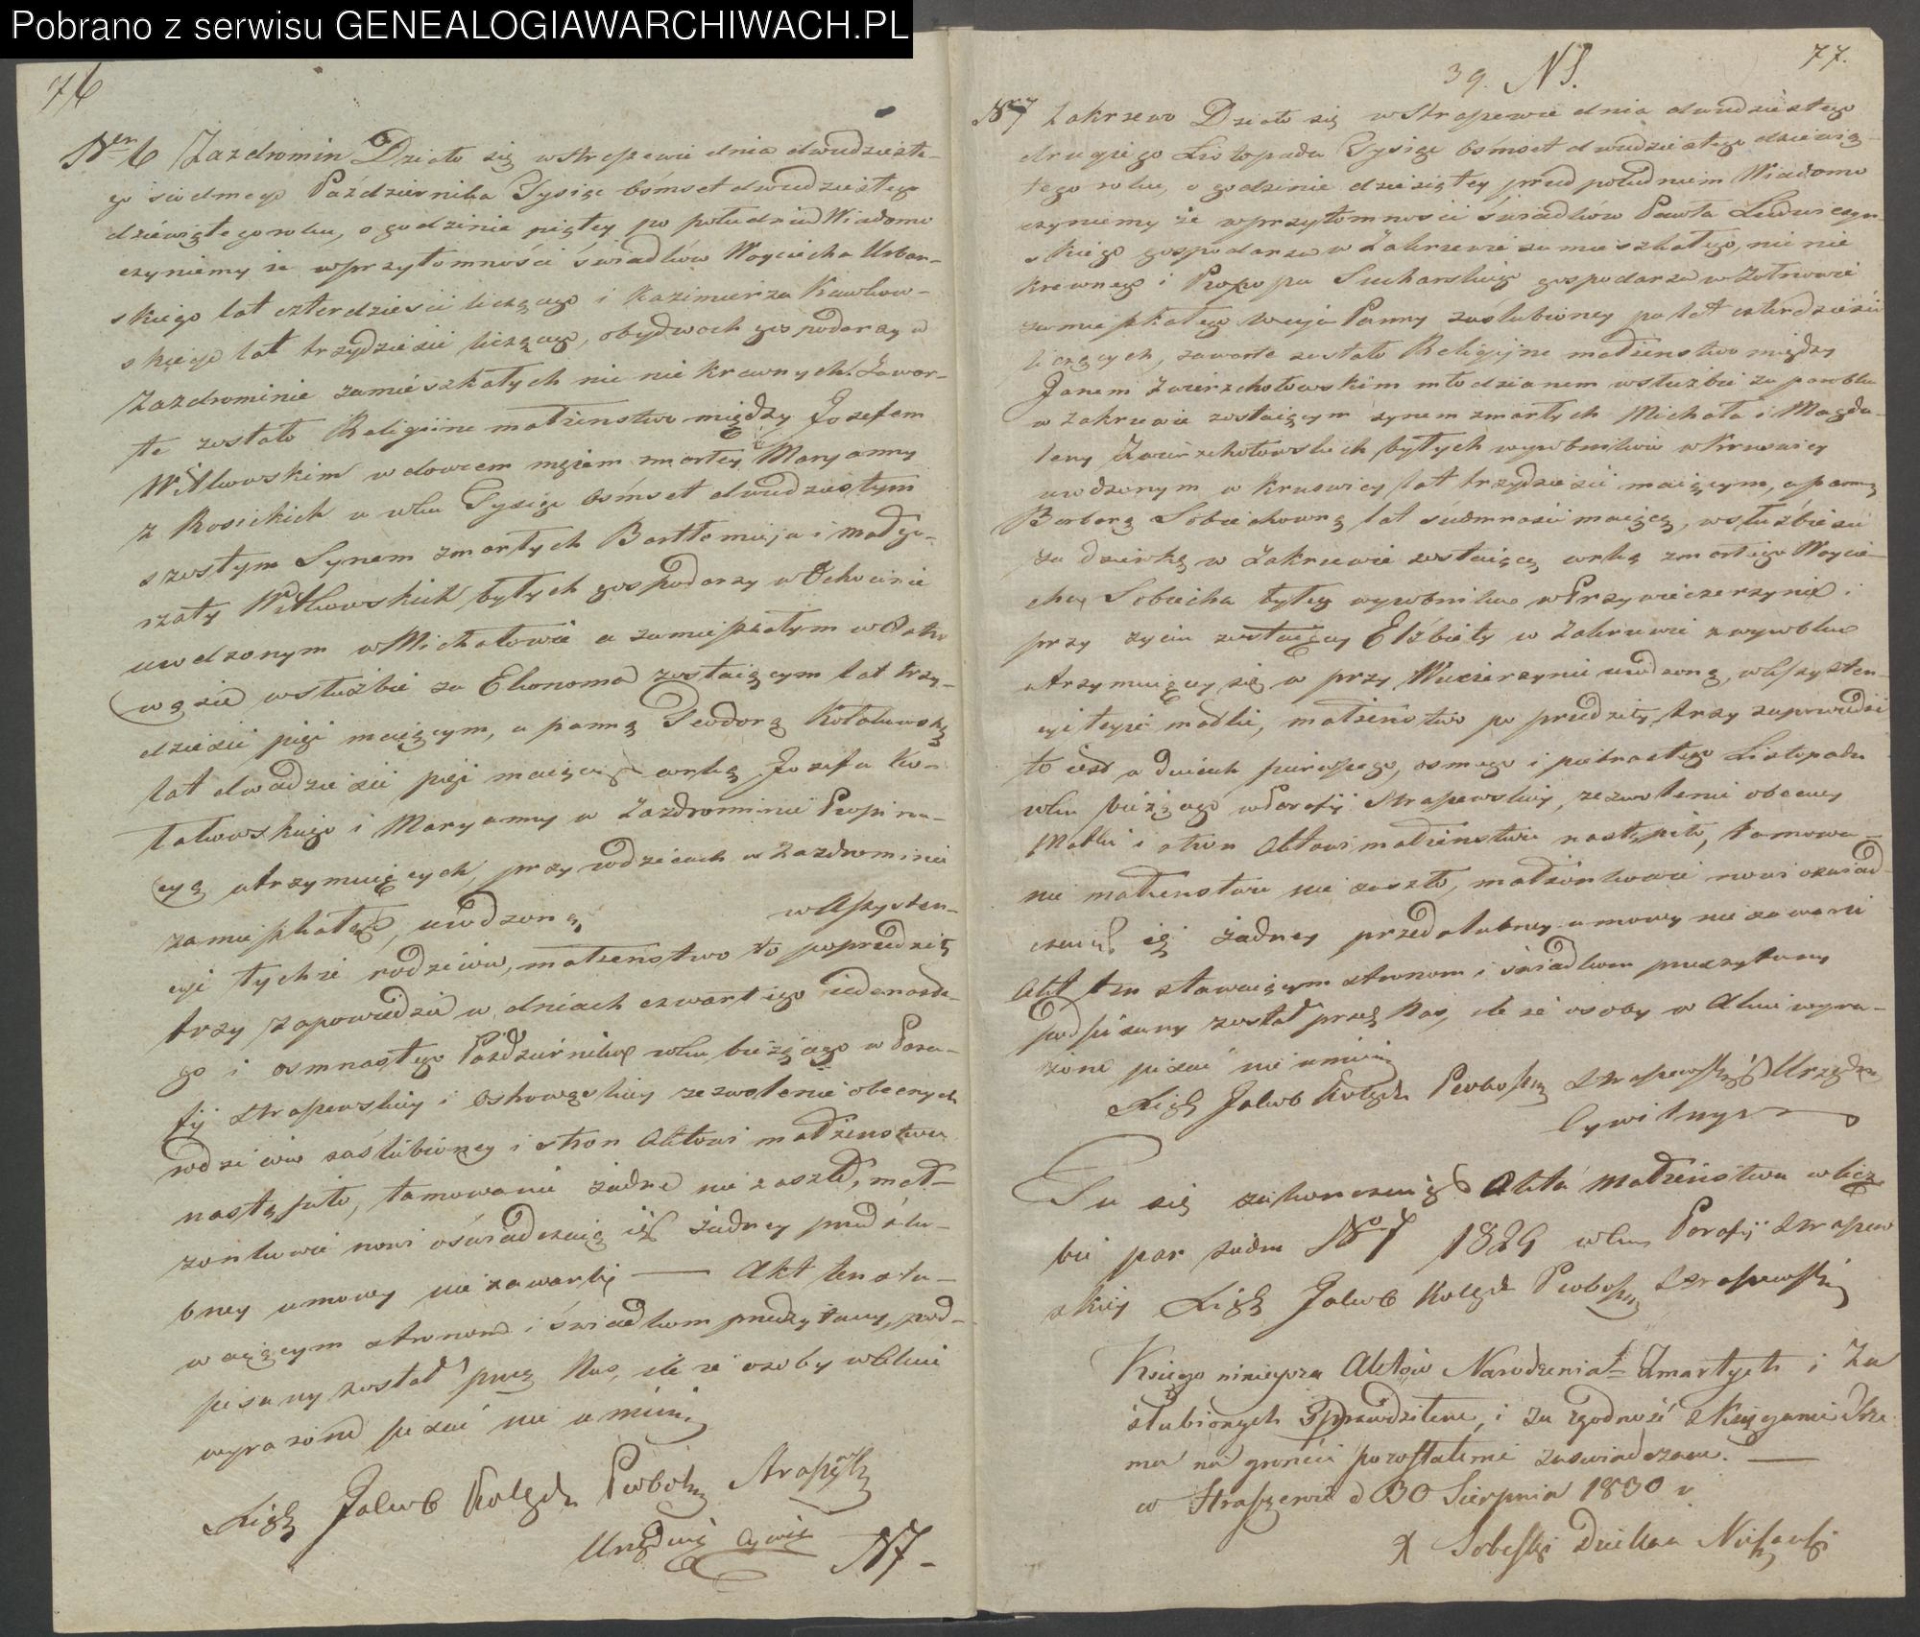 Pobrano z serwisu GENEALOGIAWARCHIWACH.PL
76
Ner 6 Zazdromin Działo się w Straszewie dnia dwudzieste-
go siodmego Października Tysiąc ośmset dwudziestego
dziewiątego roku, o godzinie piątey po południu Wiadomo
czyniemy że w przytomności świadków Woyciecha Urban-
skiego lat czterdzieści liczącego i Kazimierza Kawkow-
skiego lat trzydzieści liczącego, obydwoch gospodarzy w
Zazdrominie zamieszkałych nic nie krewnych Zawar-
te zostało Religijne małżenstwo między Jozefem
Witkowskim wdowcem mężem zmarłey Maryanny
z Rosickich w roku Tysiąc ośmset dwudziestym
szostym Synem zmarłych Bartłomieja i Małgo-
rzaty Witkowskich byłych gospodarzy w
urodzonym w Michałowie a zamieszkałym w
w służbie za Ekonoma zostaiącym lat trzy-
dzieści pięć maiącym, a panną Teodorą
lat dwadzieścia pięć maiącą corką Jozefa Ko-
i Maryanny w Zazdrominie Propina-
cyą utrzymuiących, przy rodzicach w Zazdrominie
zamieszkałą, urodzoną w Assysten-
cyi tychże rodziców, małżenstwo to poprzedziły
trzy zapowiedzie w dniach czwartego iedenaste-
go i osmnastego Października roku bieżącego w Para-
fij Straszewskiey i Ostrowąskiey zezwolenie obecnych
rodziców zaślubioney i stron Aktowi małżenstwa
nastąpiło, tamowanie żadne nie zaszło, mał-
żonkowie nowi oświadczaią iż żadney przedślu-
bney umowy nie zawarli — Akt ten sta-
waiącym stronom i świadkom przeczytany, pod-
pisany został przez Nas, ile że osoby w Akcie
wyrażone pisać nie umieią
Jakub Kolęda Proboszcz
Urzędnik Cywil
N7 -
77.
39. N8.
N7 Zakrzewo Działo się w Straszewie dnia dwudziestego
drugiego Listopada Tysiąc ośmset dwudziestego dziewią-
tego roku, o godzinie dziesiątey przed południem Wiadomo
czyniemy że w przytomności świadków Pawła Ludwiczyn-
skiego gospodarza w Zakrzewie zamieszkałego, nic nie
krewnego i Prokopa Sucharskiego gospodarza w
zamieszkałego wuja Panny zaślubioney po lat czterdzieści
liczących, zawarte zostało Religijne małżenstwo między
Janem Zwierzchołowskim młodzianem w służbie za parobka
w Zakrzewie zostaiącym synem zmarłych Michała i Magda-
leny Zwierzchołowskich byłych wyrobników w Kruswicy
urodzonym w Kruswicy lat trzydzieści maiącym, a panną
Barbarą Sobiechowną lat siedmnaście maiącą, w służbie
za dziewkę w Zakrzewie zostaiącą corką zmarłego Woycie-
cha Sobiecha byłego wyrobnika w Przywieczerzynie i
przy życiu zostaiącey Elżbiety w Zakrzewie z wyrobku
utrzymuiącey się w przy Wieczerzynie urodzoną, w Assysten-
cyi teyże matki, małżenstwo poprzedziły trzy zapowiedzi
to iest w dniach pierwszego, osmego i piętnastego Listopada
roku bieżącego w Parafij Straszewskiey, zezwolenie obecney
Matki i stron Aktowi małżenstwa nastąpiło, tamowa-
nie małżenstwa nie zaszło, małżonkowie nowi oswiad-
czaią iż żadney przedslubney umowy nie zawarli
Akt ten stawaiącym stronom i świadkom przeczytany
podpisany został przez Nas, ile że osoby w Akcie wyra-
żone pisać nie umieią
Jakub Kolęda Proboszcz Straszewski Urzędnik
Cywilny
Tu się zakonczaią Akta Małżeństwa w licz-
bie par siedm N7 1829 roku Parafij Straszew
skiey Jakub Kolęda Proboszcz Straszewski
Księga ninieysza Aktów Narodzenia Zmarłych i Za
ślubionych Sprawdziłem, i za zgodność z Księgami dwie
ma na gruncie pozostałemi zaswiadczam. —
w Straszewie d 30 Sierpnia 1830 r.
X Sobeski Dziekan Nieszawski